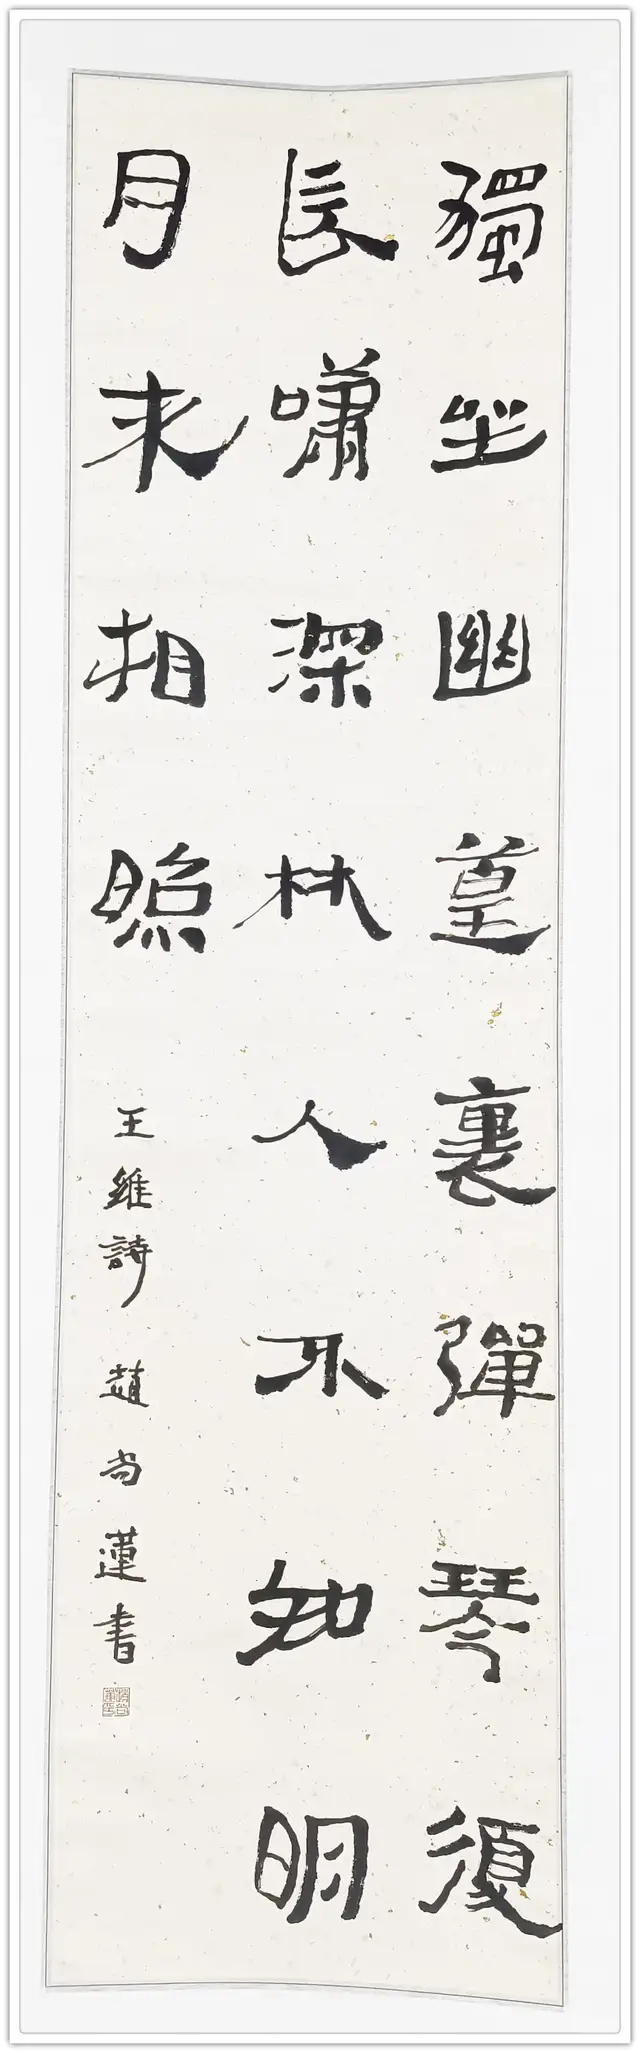 獨坐幽篁裏彈琴復
長嘯深林人不知明
月来相照
王維詩 趙尚蓮書